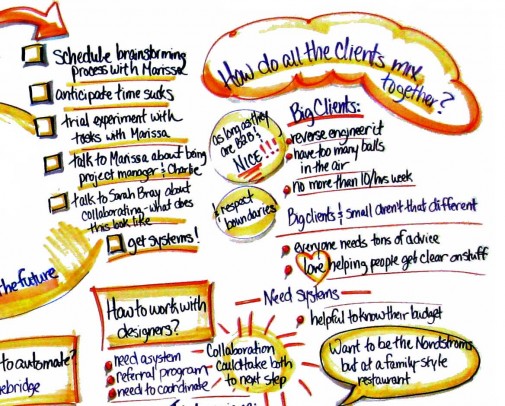 schedule brainstorming
process with Marissa
anticipate time sucks
trial experiment with
tasks with Marissa
talk to Marissa about being
project manager & Charlie
talk to Sarah Bray about
collaborating - what does
this look like
get systems!
How do all the clients mix
together?
as long as they
are B2B &
NICE!!!
& respect
boundaries
Big Clients:
reverse engineer it
have too many balls
in the air
no more than 10/hrs week
Big clients & small aren't that different
everyone needs tons of advice
love helping people get clear on stuff
Need systems
helpful to know their budget
the future
How to work with
designers?
need a system
referral program
need to coordinate
Collaboration
could take both
to next step
Want to be the Nordstroms
but at a family-style
restaurant
to automate?
ebridge